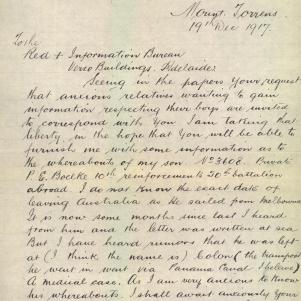 Mount. Torrens
19th Dec 1917.
To the
Red + Information Bureau
Verco Buildings. Adelaide
Seeing in the papers your request
that ancious relatives wanting to gain
information respecting their boys are invited
to correspond with You I am taking that
liberty, in the hope that You will be able to
furnish me with some information as to
the whereabouts of my son. No 3608. Private
P. E. Boelke 10th reinforcements to 50th battalion
abroad. I do not know the exact date of
leaving Australia as he sailed from Melbourne
It is now some months since last I heard
from him and the letter was written at sea
But I have heard rumors that he was left
at (I think the name is) Colon (the transport
he went in went via Panama Canal I believe)
A medical case. As I am very ancious to know
his whereabouts. I shall await anciously Yours